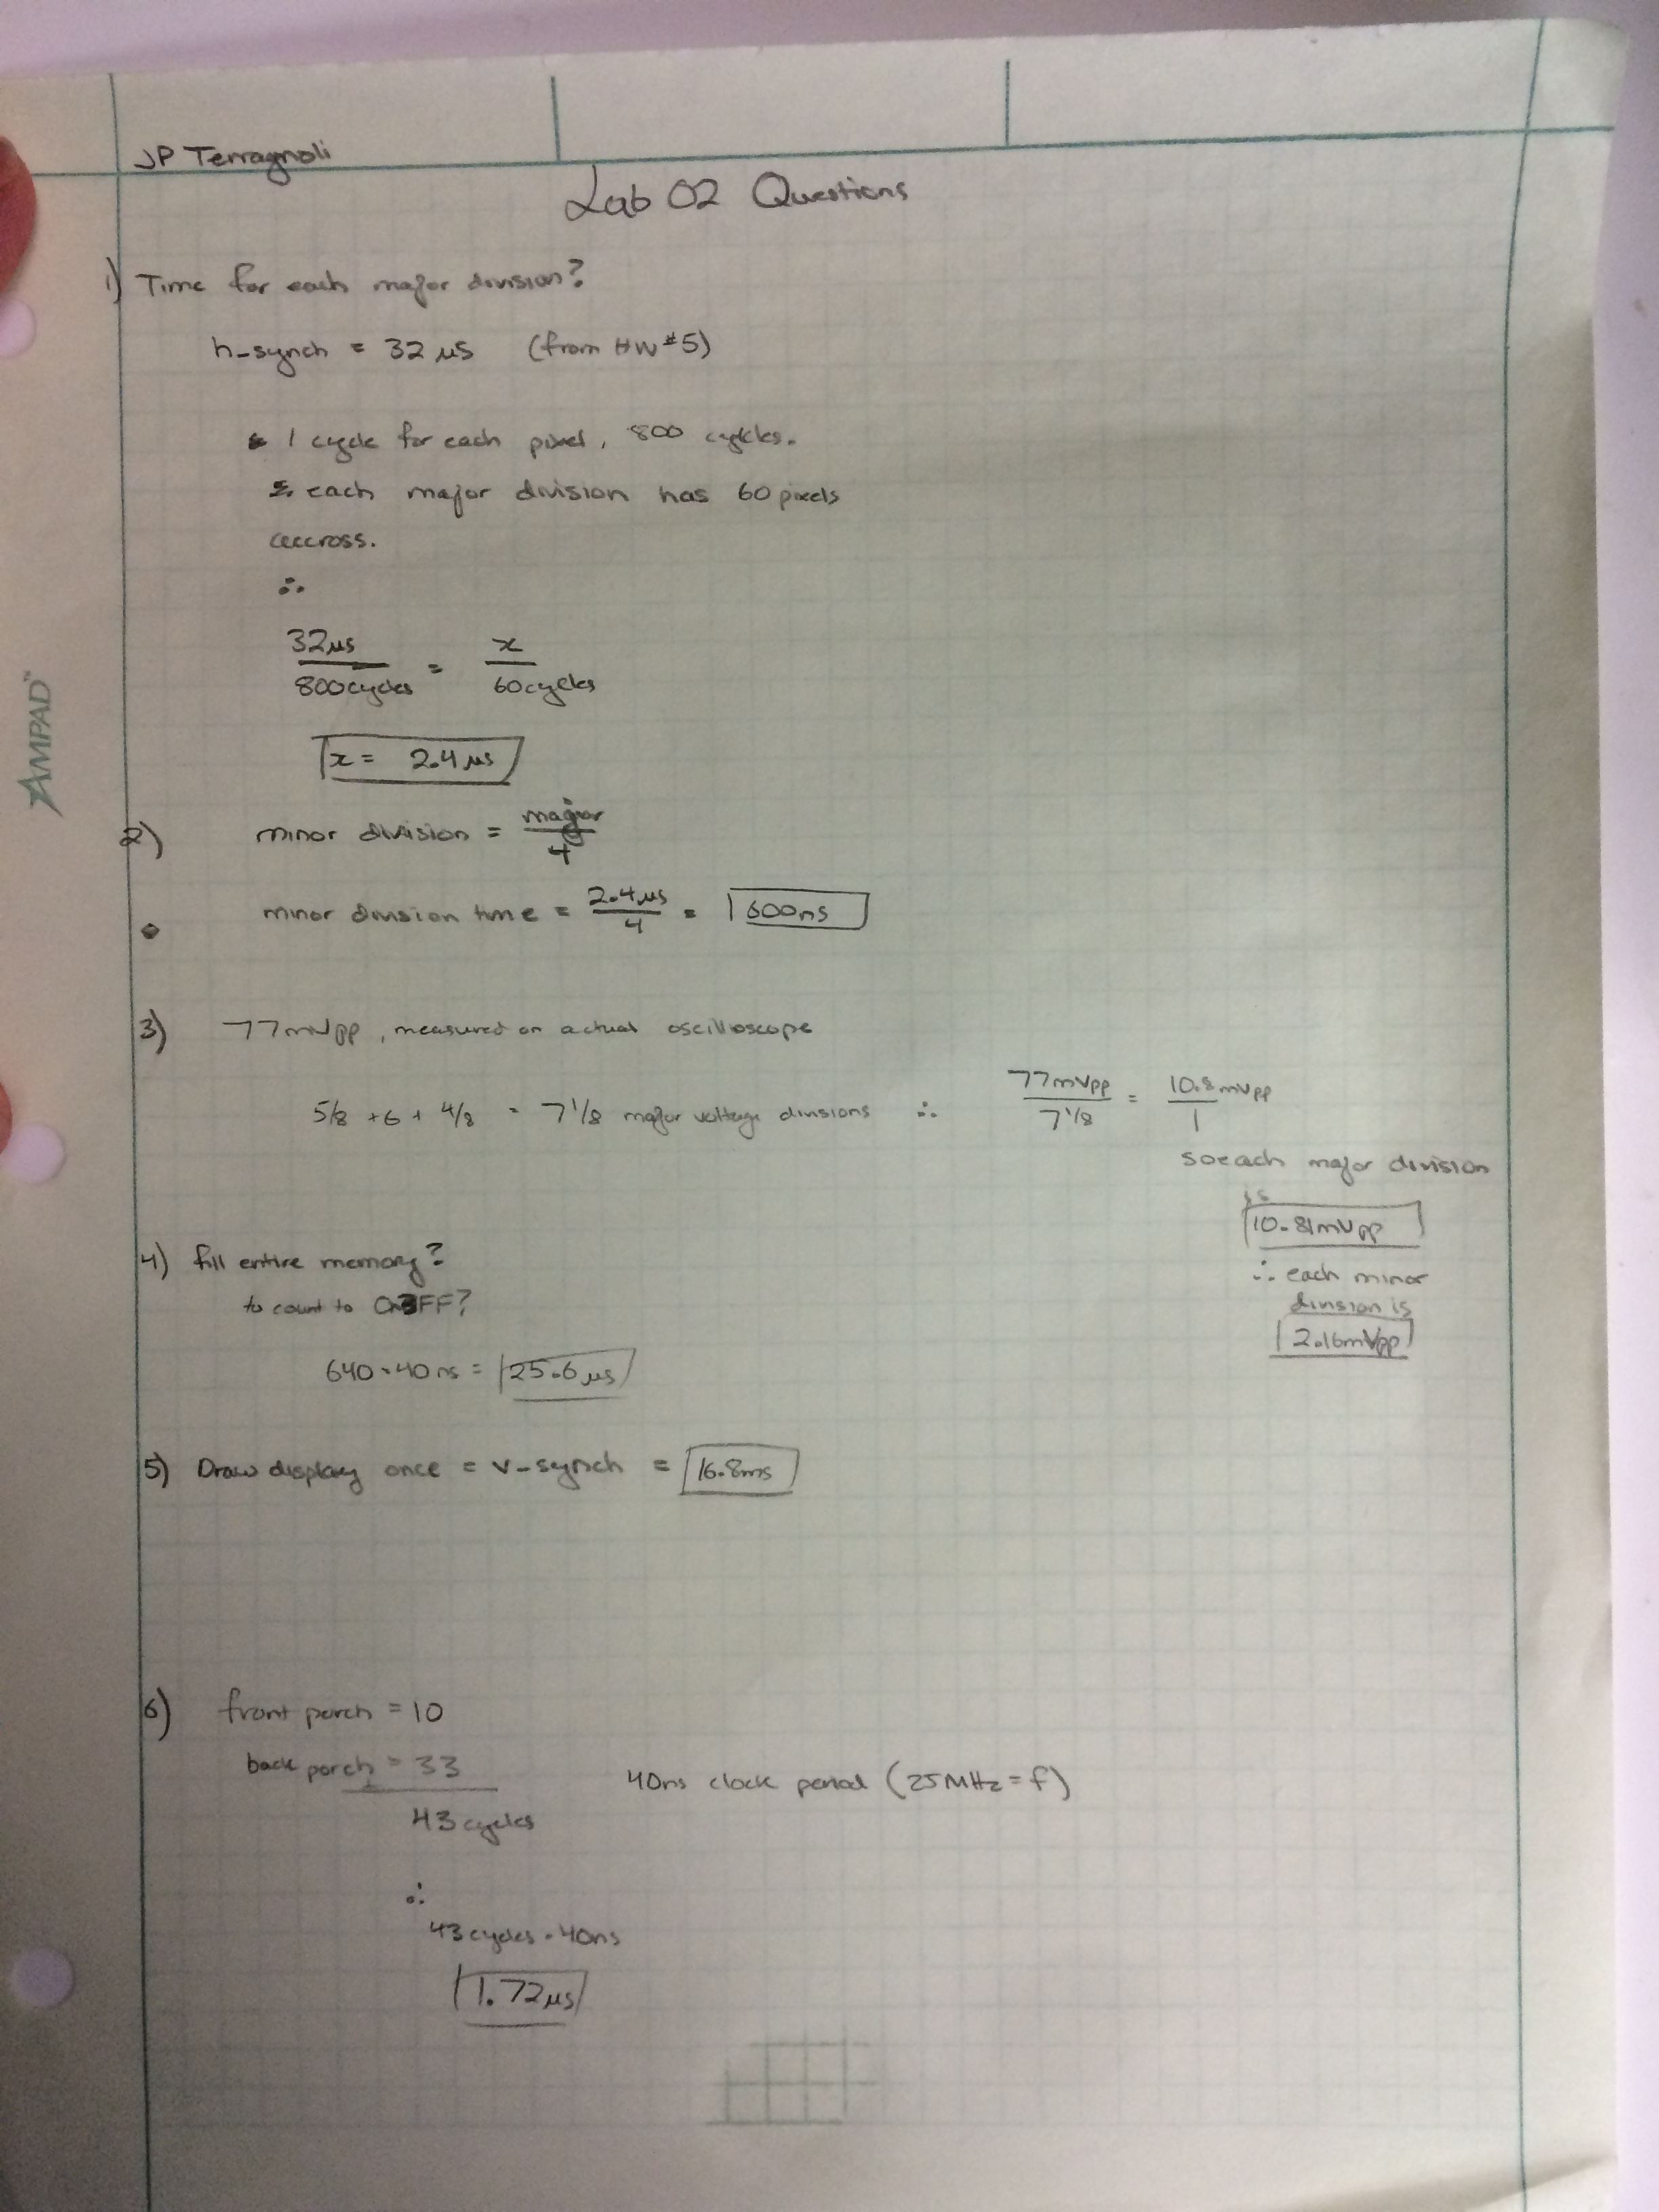 JP Terragnoli
Lab 02 Questions
1) Time for each major division?
h-synch = 32 µs (from HW #5)
1 cycle for each pixel, 800 cycles.
each major division has 60 pixels
accross.
∴
32µs / 800cycles = x / 60cycles
x = 2.4 µs
2) minor division = major / 4
minor division time = 2.4µs / 4 = 600ns
3) 77mVpp, measured on actual oscilloscope
5/8 + 6 + 4/8 = 7 1/8 major voltage divisions ∴ 77mVpp / 7 1/8 = 10.8mVpp / 1
so each major division
is
10.81mVpp
∴ each minor
division is
2.16mVpp
4) fill entire memory?
to count to 0x3FF?
640 · 40ns = 25.6 µs
5) Draw display once = v-synch = 16.8ms
6) front porch = 10
back porch = 33
40ns clock period (25MHz = f)
43 cycles
∴
43 cycles · 40ns
1.72µs
AMPAD™